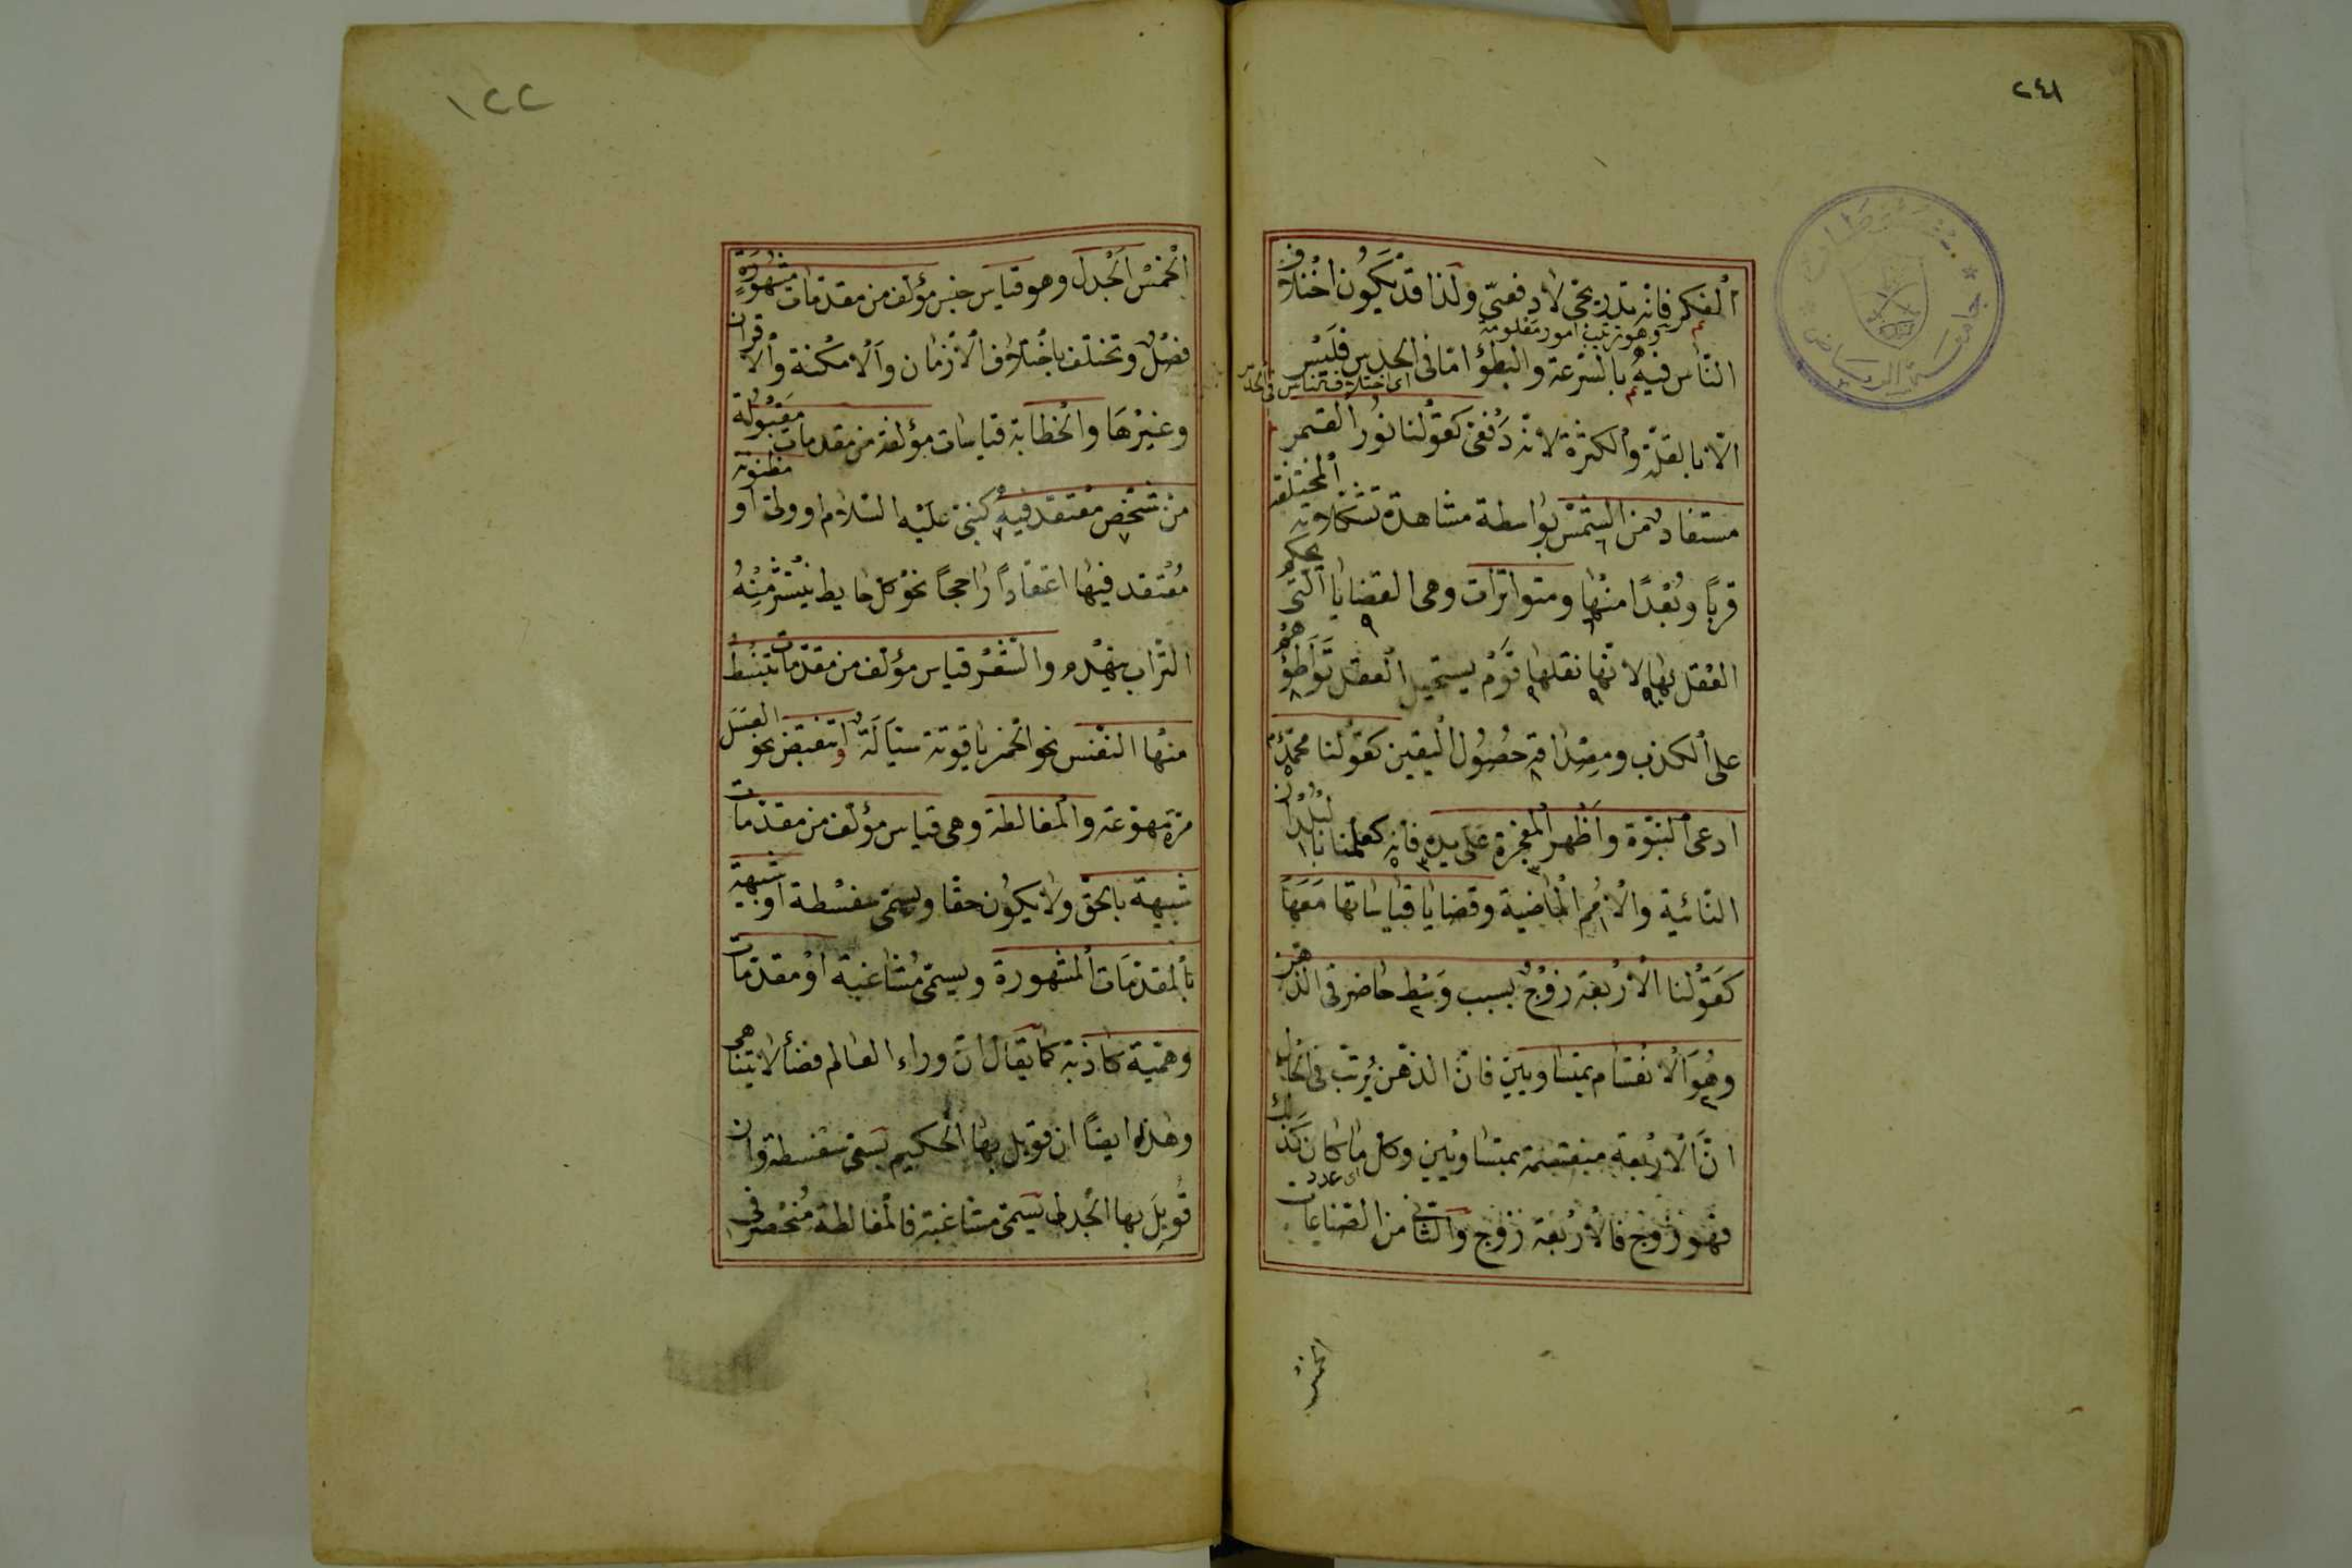 ٢٤١
الفكر فانه تدريجى لا دفعىّ ولذا قد يكون اختلاف
وهو ترتيب امور معلومة
الناس فيه بالسّرعة والبطؤ امّا فى الحدس فليس
اى اختلاف الناس فى الحدس
الّا بالقلّة والكثرة لانه دفعىّ كقولنا نور القمر
مستفاد من الشمس بواسطة مشاهدة تشكلاته المختلفة
قربًا وبُعْدًا منها ومتواترات وهى القضايا الّتى يحكم
العقل بها لانّها نقلها قوم يستحيل العقل تواطؤهم
على الكذب ومصداقه حصول اليقين كقولنا محمّد
ادعى النبوّة واظهر المعجزة على يده فانه كعلمنا بالبلدان
النائية والامم الماضية وقضايا قياساتها معها
كقولنا الاربعة زوج بسبب وسط حاضر فى الذهن
وهو الانقسام بمتساويين فانّ الذهن يُرتب فى الحال
انّ الاربعة منقسمة بمتساويين وكل ما كان كذلك
اى عدد
فهو زوج فالاربعة زوج والثانى من الصناعات
الخمس
١٢٢
الخمس الجدل وهو قياس جنس مؤلف من مقدمات مشهورة
فصل وتختلف باختلاف الأزمان والامكنة والاقران
وغيرها والخطابة قياسات مؤلفة من مقدمات مقبولة
من شخص معتقد فيه كنبىّ عليه السّلام او ولىّ او مظنونة
مُعْتقد فيها اعتقاداً راجحاً نحو كل حايط ينتثر منه
التراب ينهدم والشعر قياس مؤلف من مقدّمات تنبسط
منها النفس نحو الخمر ياقوتة سيّالة او تنقبض نحو العسل
مرّة مهوّعة والمغالطة وهى قياس مؤلف من مقدّمات
شبيهة بالحق ولا يكون حقا ويسمّى سفسطة او شبيهة
بالمقدّمات المشهورة ويسمّى مشاغبة او مقدّمات
وهميّة كاذبة كما يقال انّ وراء العالم فضأ لا يتناهى
وهذه ايضاً ان قوبل بها الحكيم يسمّى سفسطة وان
قُوبِلَ بها الجدلى يسمّى مشاغبة فالمغالطة مُنحصر فى